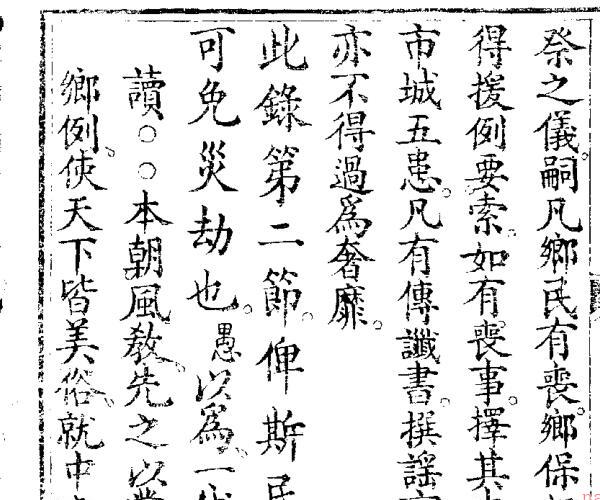 祭之儀嗣凡鄉民有喪鄉保
得援例要索如有喪事擇其
市城五患凡有傳讖書撰謡
亦不得過爲奢靡
此錄第二節俾斯民
可免災劫也愚以為一
讀○○本朝風教先之以
鄉例使天下皆美俗就中